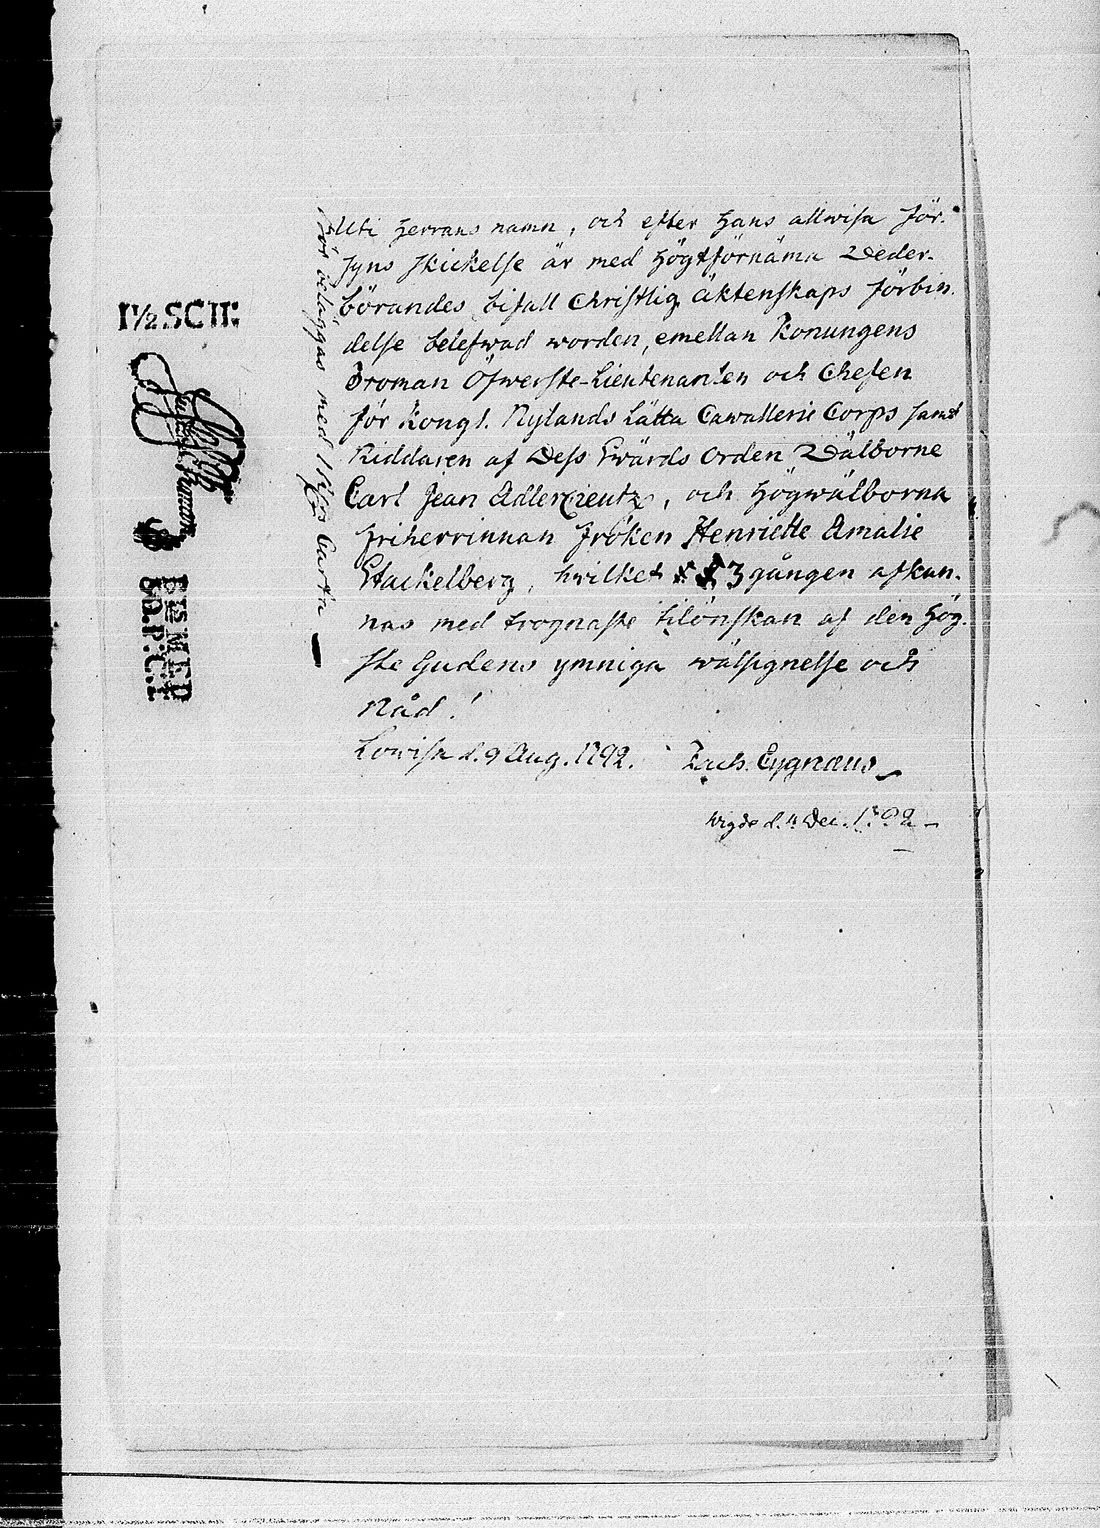 Uti Herrans namn, och efter Hans allwisa För-
syns skickelse är med Högtförnäma Weder-
börandes bifall Christlig äktenskaps förbin-
delse belefwad worden, emellan Konungens
Troman Öfwerste-Lieutenanten och Chefen
för Kongl. Nylands Lätta Cavallerie Corps samt
Riddaren af Dess Swärds Orden Wälborne
Carl Jean Adlercreutz, och Högwälborna
Friherrinnan Fröken Henriette Amalie
Stackelberg, hwilket 3 gången afkun-
nas med trognaste tilönskan af den Hög-
ste Gudens ymniga wälsignelse och
Nåd!
Lowisa d. 9 Aug. 1792. Zach. Cygnæus
wigde d. 4 Dec. 1792
Bör beläggas med Carta
1½ SC